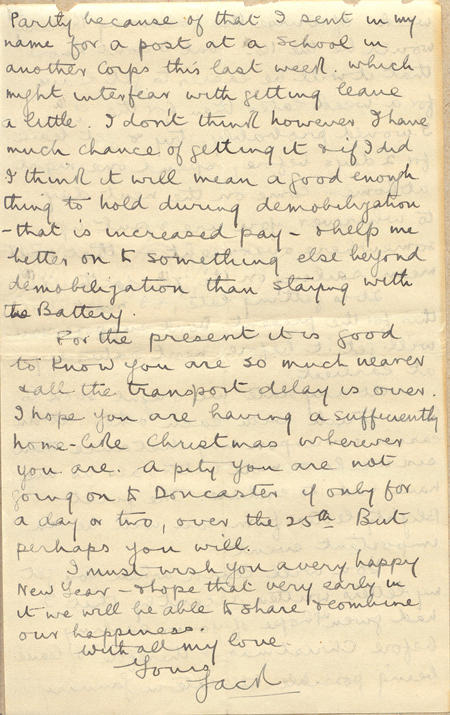 Partly because of that I sent in my
name for a post at a School in
another Corps this last week. which
might interfear with getting leave
a little. I don't think however I have
much chance of getting it & if I did
I think it will mean a good enough
thing to hold during demobilization
- that is increased pay - & help me
better on to something else beyond
demobilization than staying with
the Battery.
For the present it is good
to know you are so much nearer
& all the transport delay is over.
I hope you are having a sufficiently
home-like Christmas wherever
you are. A pity you are not
going on to Doncaster if only for
a day or two, over the 25th. But
perhaps you will.
I must wish you a very happy
New Year - & hope that very early in
it we will be able to share & combine
our happiness.
With all my love
Yours
Jack